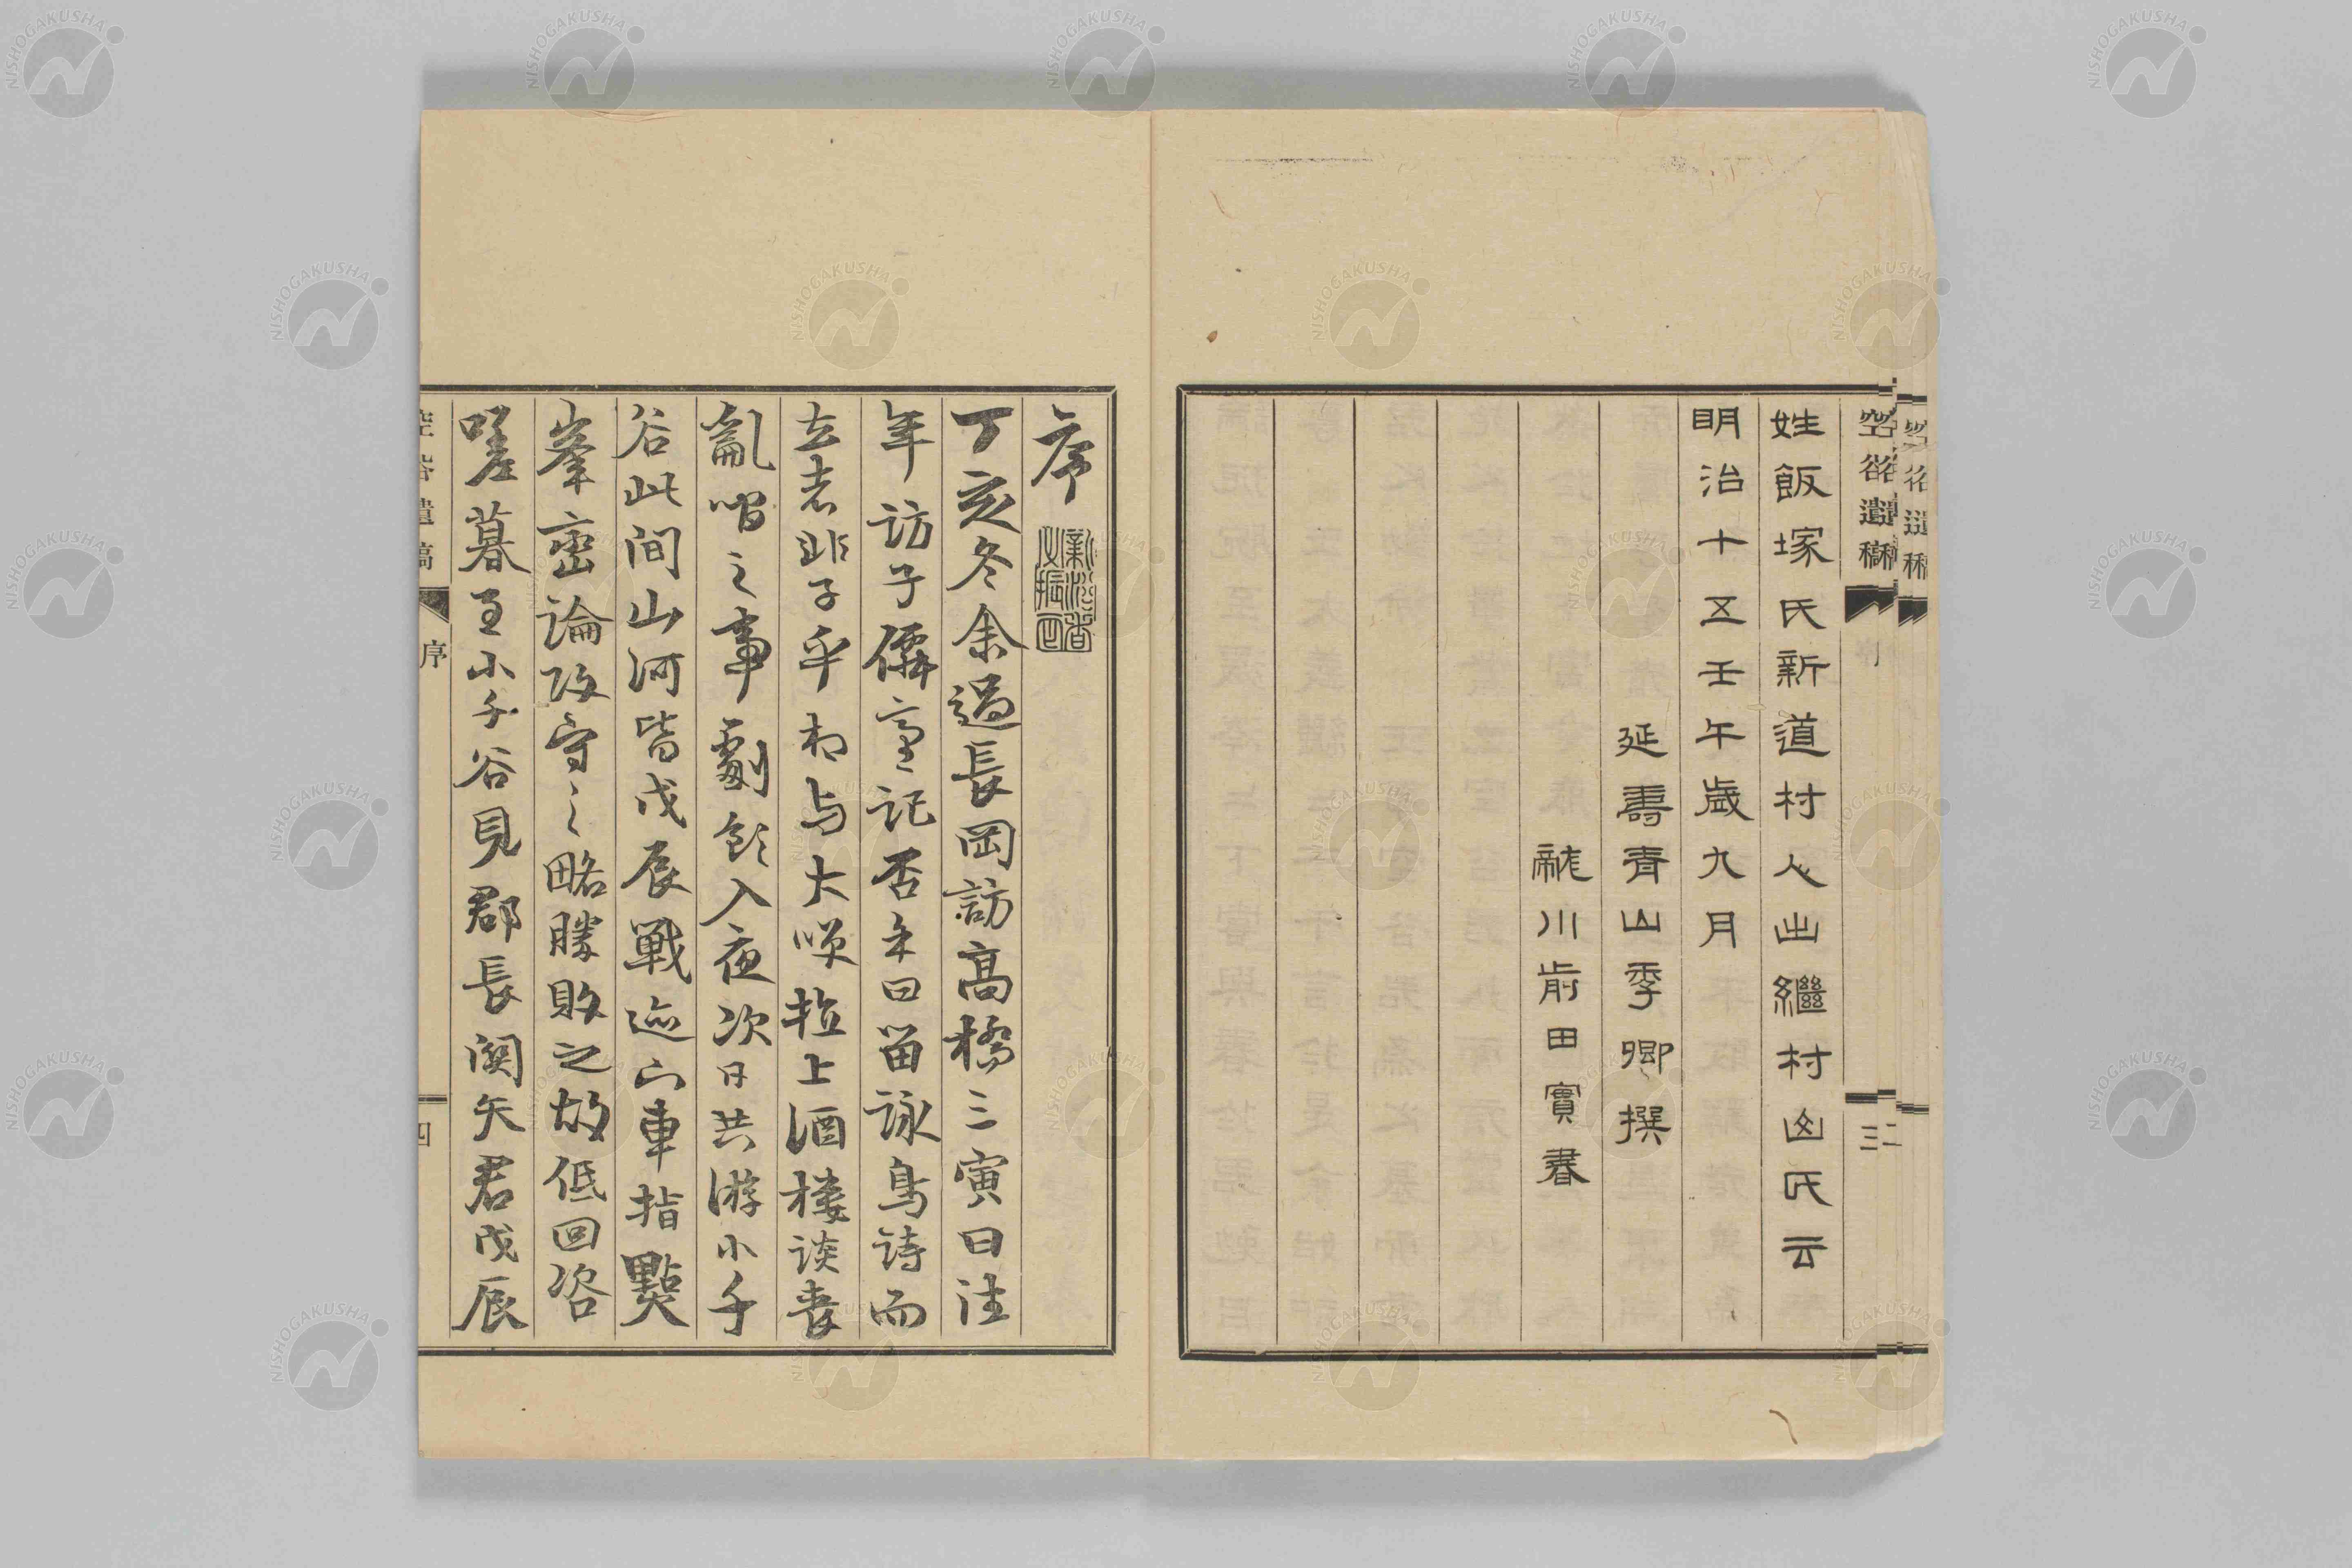 空谷遺稿
三
姓飯塚氏新道村人出繼村山氏云
明治十五壬午歲九月
延壽青山季卿撰
川前田實書
序
丁亥冬余過長岡訪高橋三寅曰往
年訪子僑寓記否余曰留詠鳥詩而
去者非子乎相与大笑拉上酒樓談喪
亂嘗之事劇飲入夜次日共游小千
谷此间山河皆戊辰戰迹山車指點
峯巒論攻守之略勝敗之故低回咨
嗟暮至小千谷見郡長関矢君戊辰
空谷遺稿
序
四
NISHOGAKUSHA